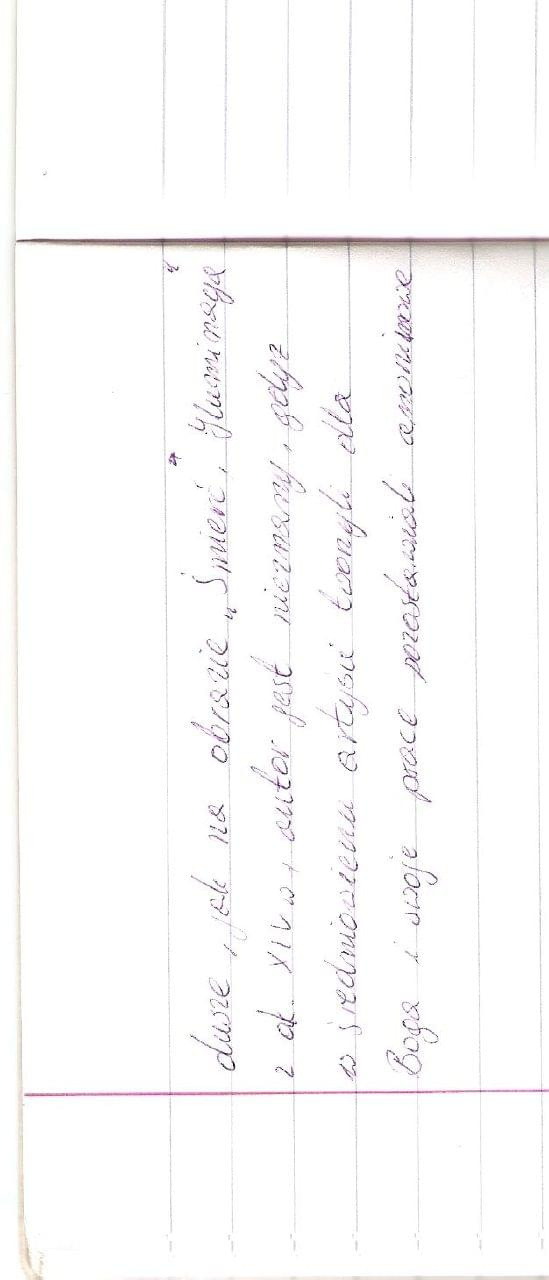 dwore, jak na obrazie „Śmierć", Iluminacja"
z ok. XIV w, autor jest nieznany, gdyż
w średniowieczu artyści tworzyli dla
Boga i swoje prace pozostawiali anonimowe